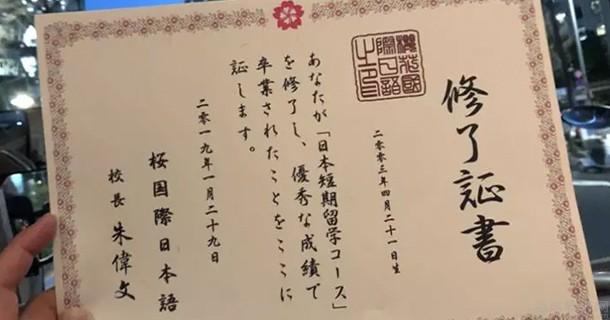 修了証書
二〇〇三年四月二十一日生
あなたが「日本短期留学コース」
を修了し、優秀な成績で
卒業されたことをここに
証します。
二〇一九年一月二十九日
桜国際日本語
校長 朱偉文